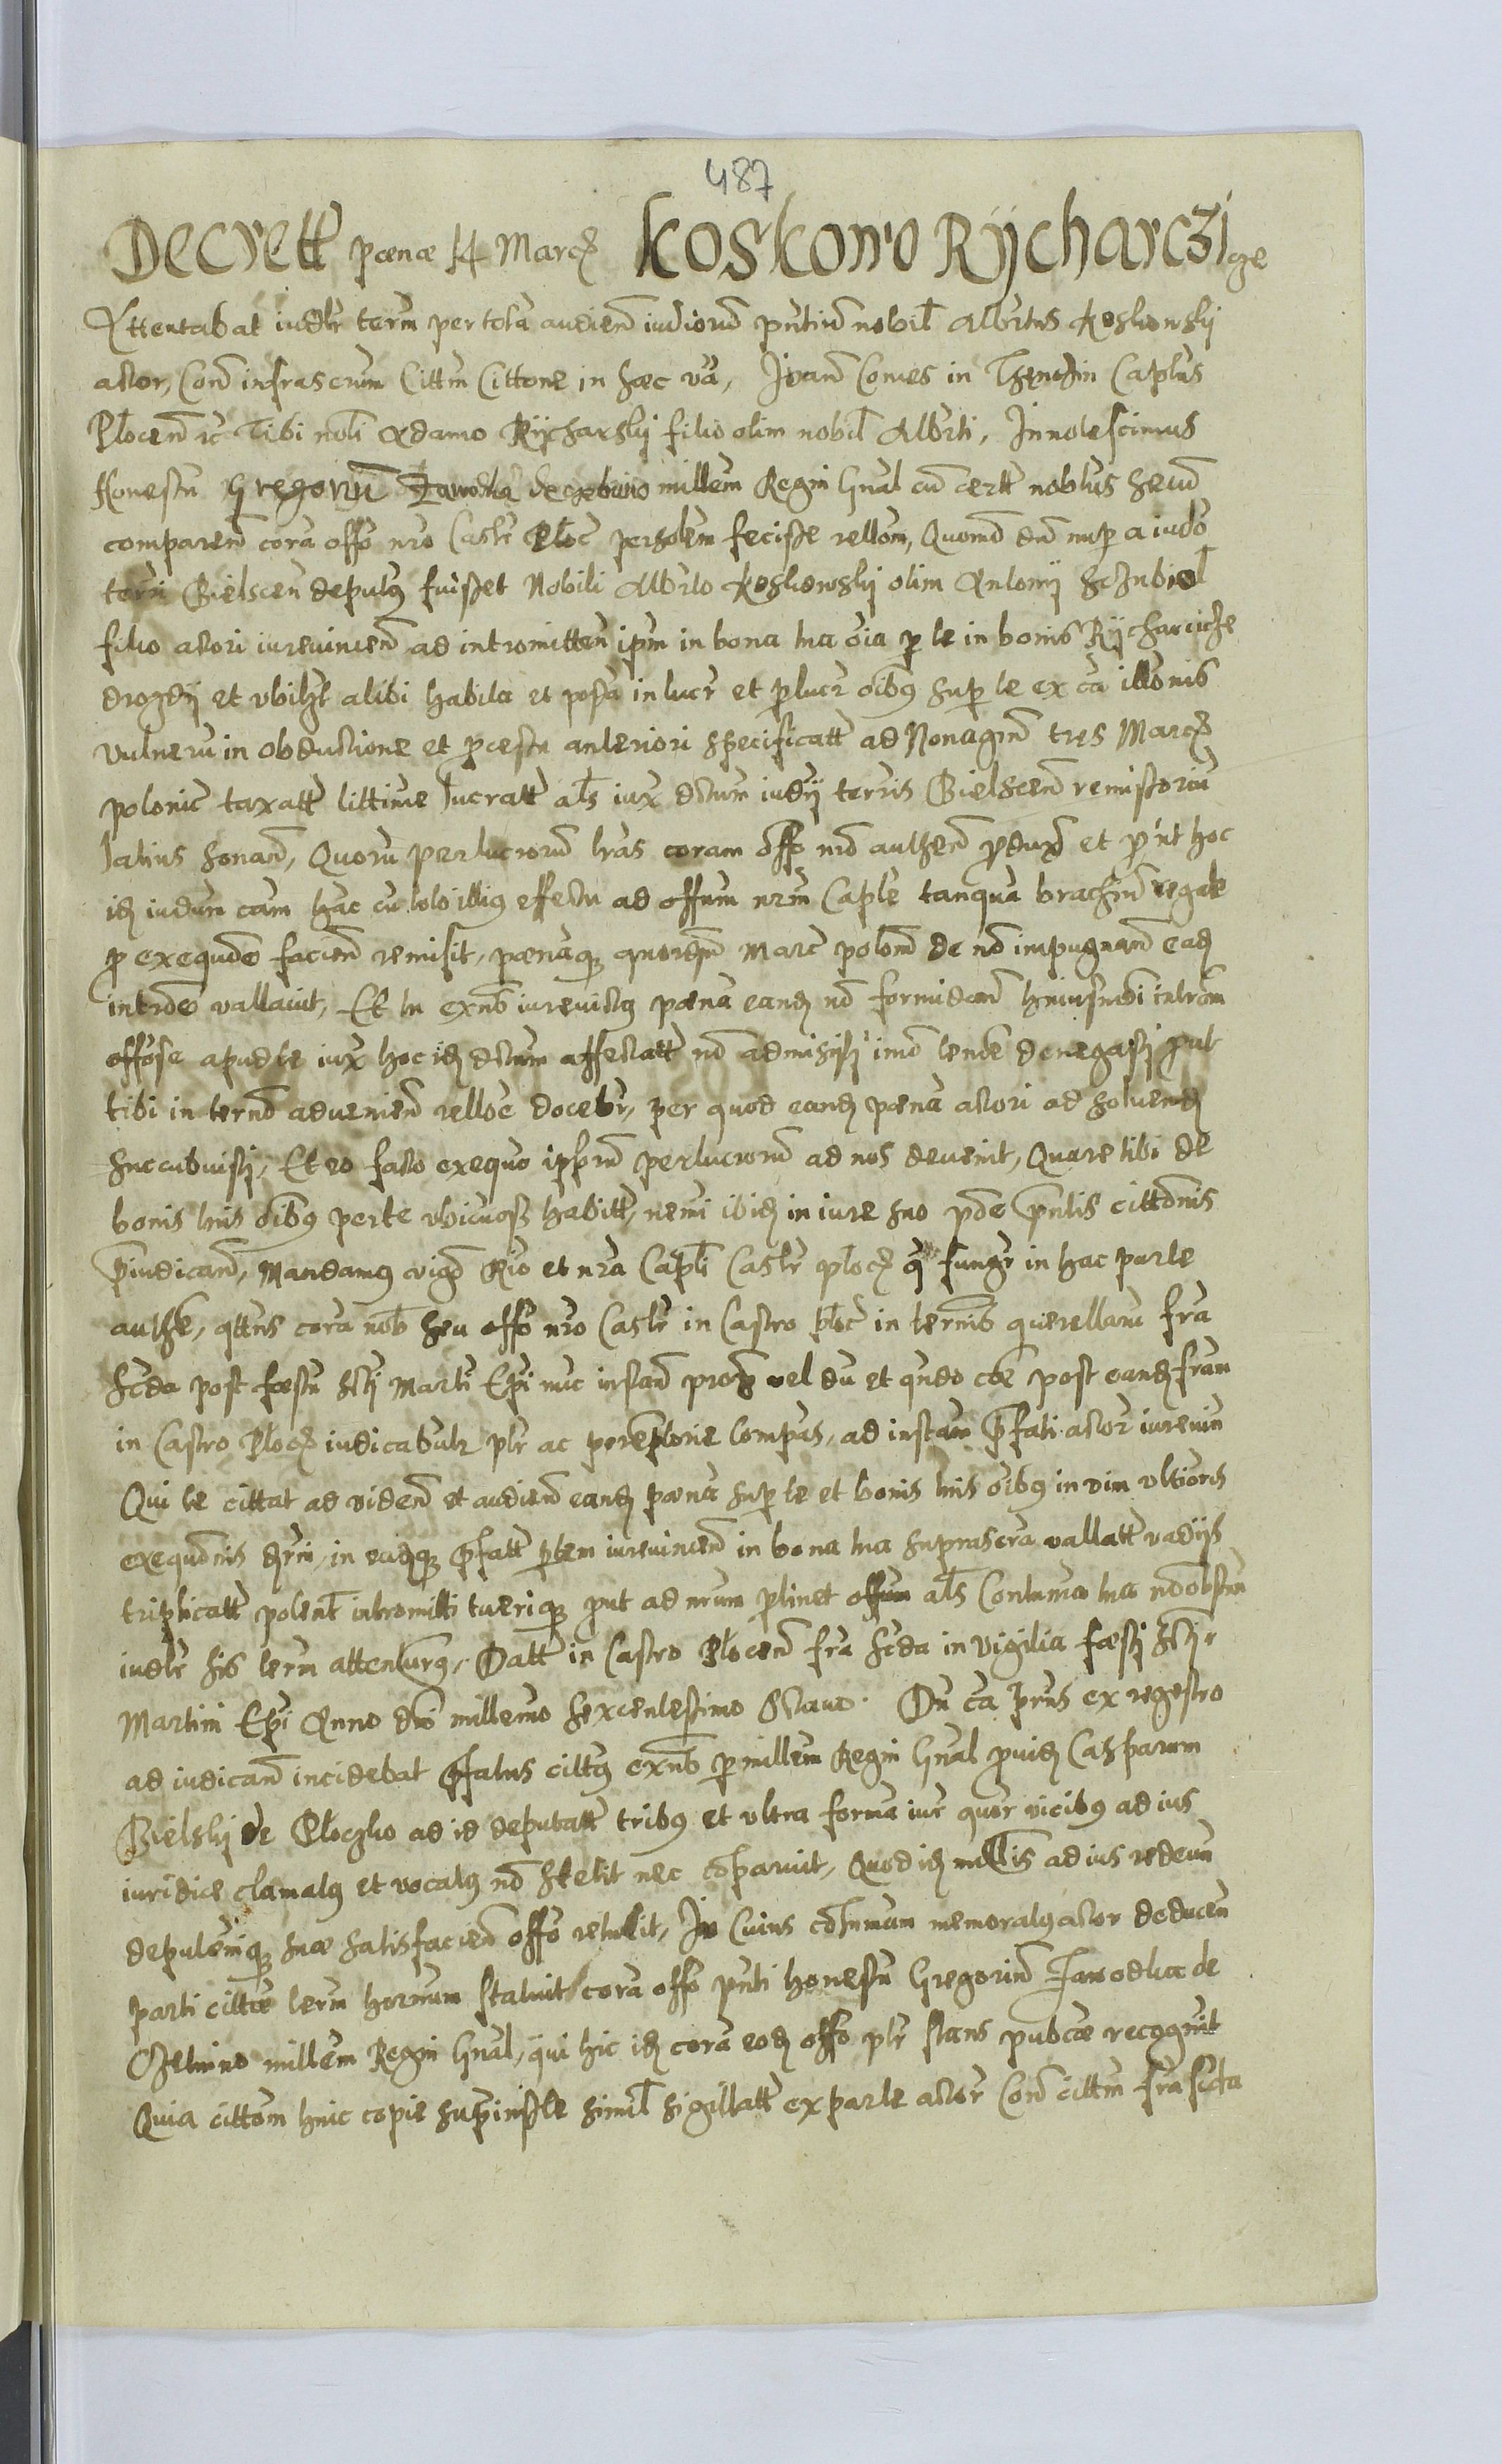 487
Decrett pœnæ 14 Marcz Koskowo Rÿcharczÿge
Attentabat iudlr term per tota audien iudiorũ pñtiũ nobil Albrtus Koskowskÿ
actor, Conn infrascrum Cittm Cittone in hæc va, Joan Comes in Thenchin Caplus
Plocen rc Tibi noli Adamo Rÿcharskÿ filio olim nobil Albrti, Innotescimus
Honestu Gregoriũ Zawodka de millem Regin Gnal cũ certt noblus secũ
comparen cora offo nro Castr Ploc personlem fecisse rellom, Quomo dũ nup a iudo
terri Bielscen deputus fuisset Nobili Albrto Koskowskÿ olim Antonij
filio actori iurevincen ad intromitten ipm in bona tua oia p te in bonis Rÿcharcicze
drozdÿ et vbilzt alibi habita et posta in lucr et plucr oibus sup te ex ca illonis
vulneru in obductione et pcestu anteriori specificatt ad Nonagin tres Marcz
polonic taxatt littime lucratt als iux dctum iudij terris Bielscen remissoriũ
latius sonan, Quorũ perlucrorũ lras coram offo nro authen pduxo et put hoc
id iudum cam hac cu toto illius effectu ad offum nrm Caple tanqua brachiũ regale
p exequone facien remisit, pœnaque quordm Marc polon de no impugnan ead
introe vallavit, Et tu exns iurevictus pœna eand no formidan huiusmodi intrõm
offose apud te iux hoc id dctum affectatt no admisisti imo tente denegasti put
tibi in terno advenien relloe docebr, per quod eand pœna actori ad solvend
succubuisti, Et eo facto exequo ipsrum perlucrorum ad nos devenit, Quare tibi de
bonis tuis oibus per te vbicuosz habitt, nemi ibid in iure suo pde pntis cittonis
piudican, Mandamus vigo Rio et nra Capli Castr plocz q fungr in hac parte
authe, qttus cora nob seu offo nro Castr in Castro ploc in ternis querellaru fra
scda post festu scti Marti Epi nuc instan prox vel du et qndo cõe post eand fram
in Castro Plocz iudicabutr plr ac peremptorie Compas, ad instam pfati actor iurevin
Qui te cittat ad viden et audien eand pœna sup te et bonis tuis oibus in vim vltioris
exequonis drni, in eadque pfatt ptem iurevincen in bona tua suprascra vallatt vadijs
triplicatt polent intromitti tuerique put ad nrum ptinet offum als Contuma tua no obstan
iudlr sis term attenturus, Datt in Castro Plocen fra scda in vigilia fœsti scti
Martini Epi Anno dni millemo sexcentesimo Octavo. Du ca pns ex regestro
ad iudican incidebat pfatus cittus exns p millem Regin Gnal provid Casparum
Bielski de Ploczko ad id deputatt tribus et vltra forma iur quor vicibus ad ius
iuridice clamatus et vocatus no stetit nec coparuit, Quod id mllis ad ius redeun
deputonique suæ satisfacien offo retulit, In Cuius cõtumam memoratus actor deducen
parti cittæ term hornum statuit cora offo pnti honestu Gregoriũ Zawodka de
millem Regin Gnal, qui hic id cora eod offo plr stans publicæ recognuit
Quia cittom huic copie supinste simil sigillatt ex parte actor Con cittm fra sexta